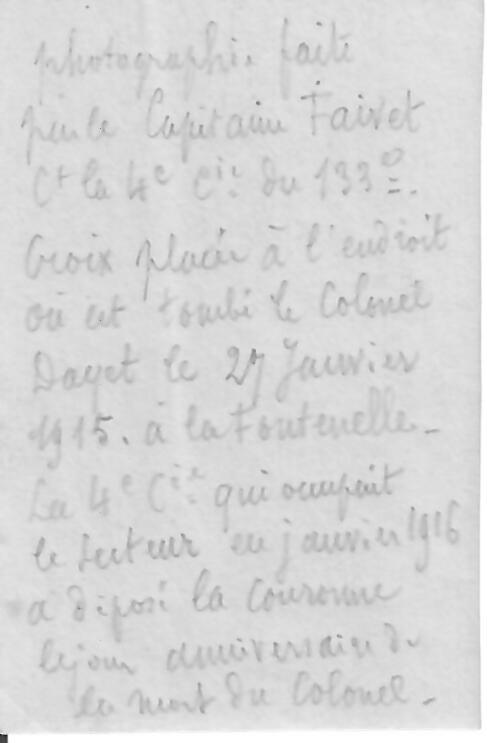 photographie faite
par le Capitaine Faivet
Ct la 4e Cie du 133e.
Croix placée à l'endroit
où est tombé le Colonel
Dayet le 27 Janvier
1915. à la Fontenelle_
La 4e Cie qui occupait
le secteur en janvier 1916
a déposé la couronne
le jour anniversaire de
la mort du Colonel_